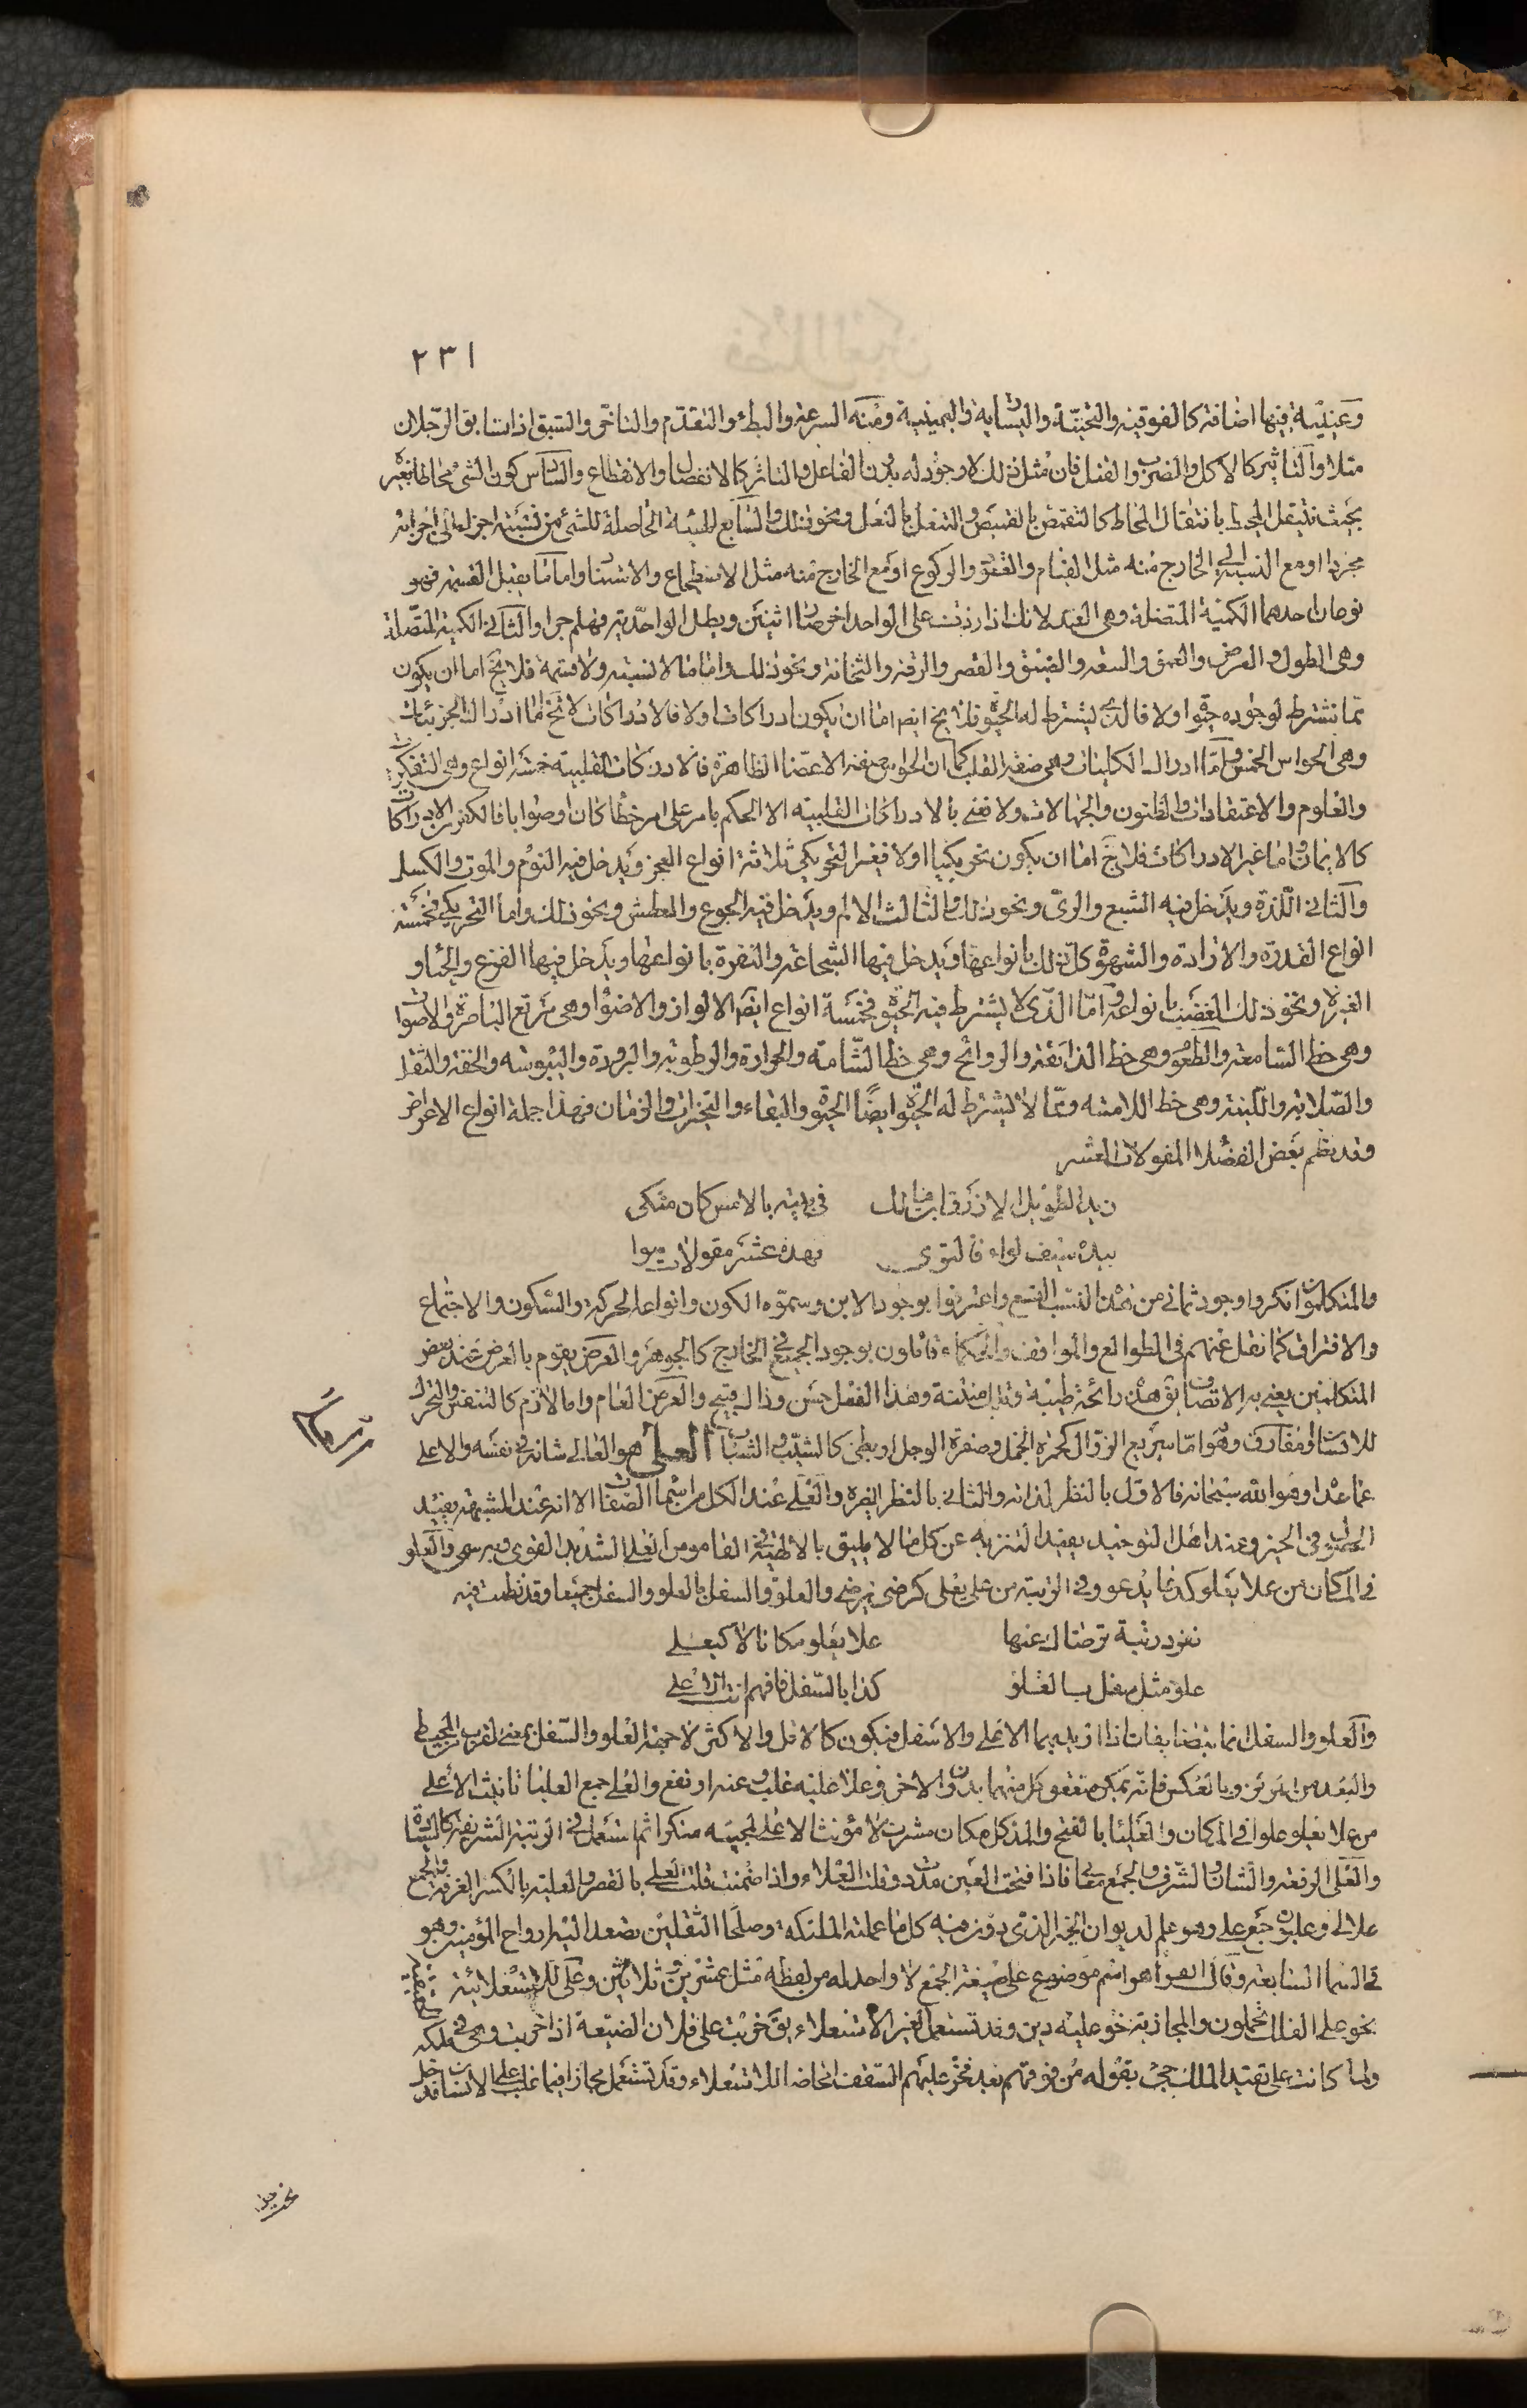 ٢٣١
وعينيّة فيها اضافة كالفوقية والتحتيّة واليسارية واليمينية ومنه السرعة والبطء والتقدّم والتاخّر والسبق اذا تسابق الرّجلان
مثلا والتاثير كالاكل والضرب والقتل فان مثل ذلك لا وجود له بدون الفاعل والتاثر كالانفصال والانقطاع والسادس كون الشئ محاطا بغيره
بحيث ينتقل المحيط بانتقال المحاط كالتقمّص بالقميص والتنعل بالنعل ونحو ذلك والسابع الهيئة الحاصلة للشئ من نسبة اجزائه الى اجزائه
مجردا او مع النسبة الى الخارج منه مثل القيام والقعود والركوع او مع الخارج منه مثل الاضطجاع والاستناد واما ما يقبل القسمة فهو
نوعان احدهما الكمية المنفصلة وهى العدد لانك اذا زدت على الواحد اخر صار اثنين وبطل الواحدية فهلم جرا والثانى الكمية المتصلة
وهى الطول والعرض والعمق والسعة والضيق والقصر والرقة والثخانة ونحو ذلك واما ما لا نسبة ولا قسمة فلا يخ اما ان يكون
مما تشترط لوجوده حيوة اولا فالذى يشترط له الحيوة فلا يخ ايضا اما ان يكون ادراكات اولا فالادراكات لا تخ اما ادراك الجزئيات
وهى الحواس الخمس واما ادراك الكليات وهى صفة القلب كما ان الحواس صفة الاعضا الظاهرة فالادراكات القلبية خمسة انواع وهى التفكرات
والعلوم والاعتقادات والظنون والجهالات ولا نعنى بالادراكات القلبية الا الحكم بامر على امر خطأ كان او صوابا فالكفر من الادراكات
كالايمان واما غير الادراكات فلا يخ اما ان يكون تحريكيا اولا فغير التحريكى ثلاثة انواع العجز ويدخل فيه النوم والموت والكسل
والثانى اللذة ويدخل فيه الشبع والرى ونحو ذلك والثالث الالم ويدخل فيه الجوع والعطش ونحو ذلك واما التحريكى فخمسة
انواع القدرة والارادة والشهوة كل ذلك بانواعها ويدخل فيها الشجاعة والنفرة بانواعها ويدخل فيها الفزع والحيا و
الغيرة ونحو ذلك الغضب بانواعه واما الذى لا يشترط فيه الحيوة فخمسة انواع ايضا الالوان والاضوا وهى مرتع الباصرة والاصوات
وهى حظ السامعة والطعوم وهى حظ الذائقة والروائح وهى حظ الشامة والحرارة والرطوبة والبرودة واليبوسة والخفة والثقل
والصلابة واللينة وهى حظ اللامسة ومما لا يشترط له الحيوة ايضًا الحيوة والبقاء والتحيزات والزمان فهذا جملة انواع الاعراض
وقد نظم بعض الفضلا المقولات العشر
زيد الطويل الازرق ابن مالك فى بيته بالامس كان متكى
بيده سيف لواه فالتوى فهذه عشر مقولات سوا
والمتكلمون انكروا وجود ثمانى من هذه النسب التسع واعترفوا بوجود الاين وسموه الكون وانواعه الحركة والسكون والاجتماع
والافتراق كما نقل عنهم فى الطوالع والمواقف والحكماء قائلون بوجود الجميع فى الخارج كالجوهر والعرض يقوم بالعرض عند بعض
المتكلمين يعنى به الاتصاف يق هذه رائحة طيبة وتلك منتنة وهذا الفعل حسن وذاك قبيح والعرض العام واما لازم كالتنفس والتحرك
للانسان او مفارق وهو اما سريع الزوال كحمرة الخجل وصفرة الوجل او بطئ كالشيب والشباب العلى هو العالى شانه فى نفسه والاعلى
عما عداه وهو الله سبحانه فالاول بالنظر لذاته والثانى بالنظر لغيره والعلى عند الكل من اسما الصفات الا انه عند المشبهة يفيد
الحصول فى الحيز وعند اهل التوحيد يفيد التنزيه عن كل ما لا يليق بالالهية وفى القاموس العلى الشديد القوى وبه سمى والعلو
فى المكان من علا يعلو كدعا يدعو وفى الرتبة من على يعلى كرضى يرضى والعلو والسفل بالعلو والسفل جميعا وقد نظمت فيه
تفرد رتبة ترضاك عنها علا يعلو مكانا لا كيعلى
علو مثل سفل بالعلو كذا بالسفل فافهم انت الاعلى
والعلو والسفل انما يتضايفان اذا اريد بهما الاعلى والاسفل فيكون كالاقل والاكثر لا جهة العلو والسفل بمعنى القرب من المحيط
والبعد من المركز وبالعكس فانه يمكن تعقل كل منهما بدون الاخر وعلا غليه غلب وعنه ارتفع والعلى جمع العليا تانيث الاعلى
من علا يعلو علوا فى المكان والعليا بالفتح والمد كل مكان مشرف لا مؤنث الاعلى لمجيئه منكرا ثم استعمل فى الرتبة الشريفة كالشان
والعلى الرفعة والشان والشرف والجمع معالى فاذا فتحت العين مددت وقلت العلاء واذا ضممت قلت العلى بالقصر والعلية بالكسر الغرفة والجمع
علالى وعليون جمع على وهو علم لديوان الخير الذى دوّن فيه كل ما عملته الملئكة وصلحا الثقلين يصعد اليه ارواح المؤمنين وهو
فى السما السابعة وقال الفرا هو اسم موضوع على صيغة الجمع لا واحد له من لفظه مثل عشرين وثلاثين وعلى للاستعلا الحقيقية
نحو على الفلك تحملون والمجازية نحو عليه دين وقد تستعمل لغير الاستعلاء يق خربت على فلان الضيعة اذا خربت وهى فى ملكه
ولما كانت على تفيد الملك جئ بقوله من فوقهم بعد فخر عليهم السقف اتحاضه للاستعلاء وقد تستعمل مجازا فيما غلب على الانسان